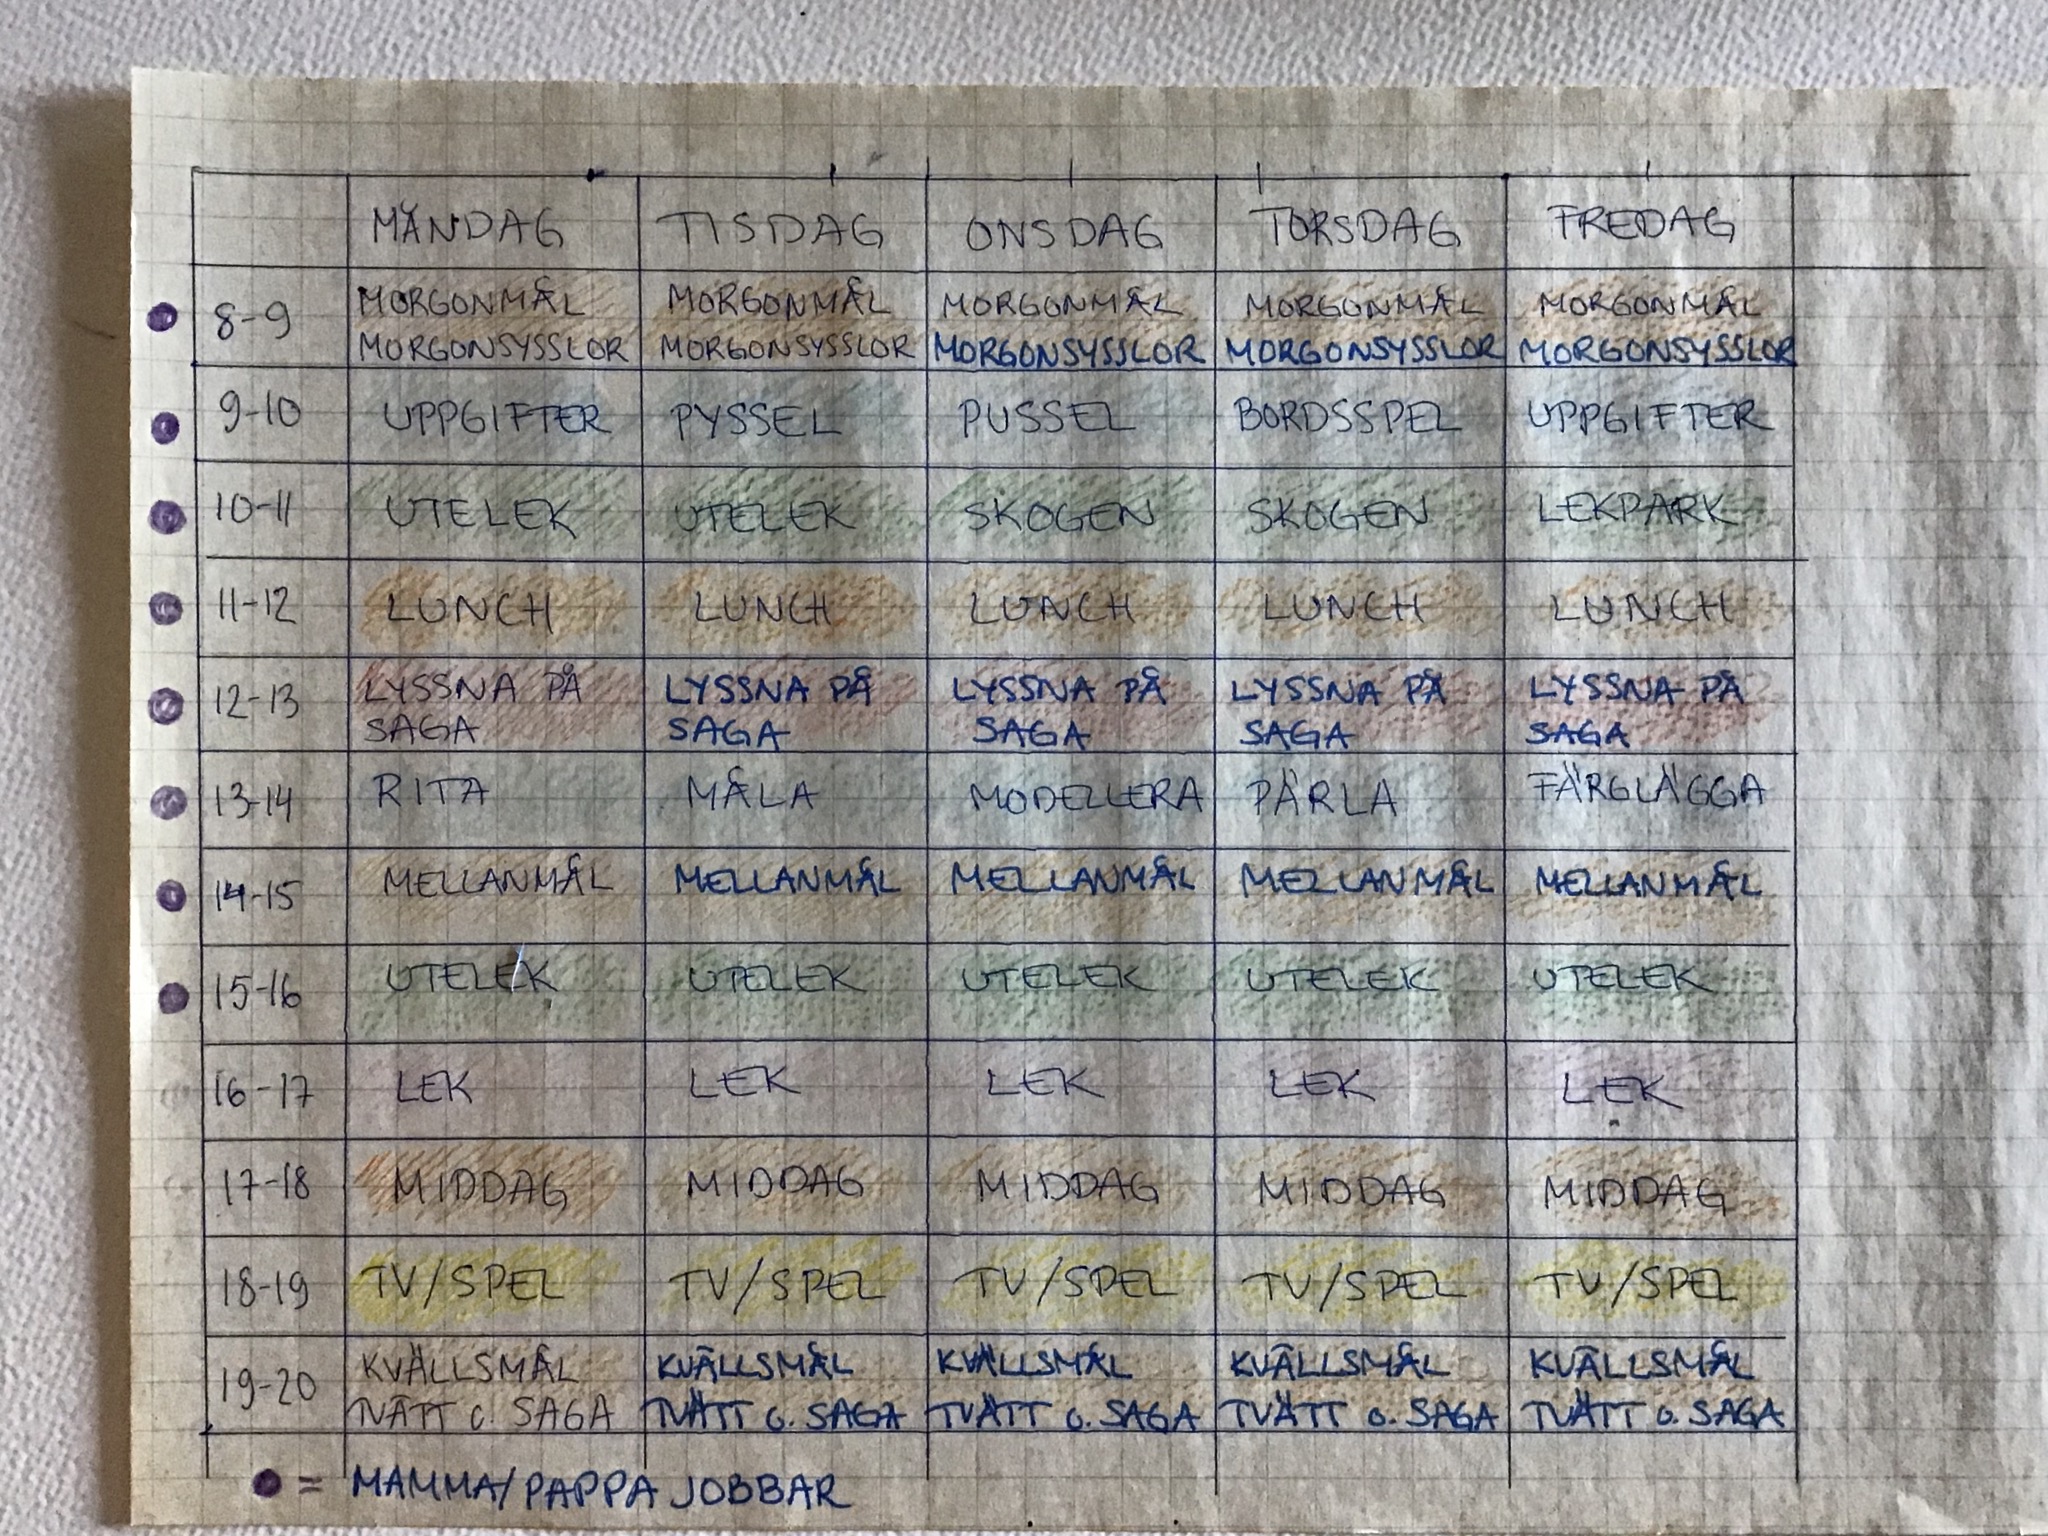 MÅNDAG TISDAG ONSDAG TORSDAG FREDAG
8-9 MORGONMÅL MORGONMÅL MORGONMÅL MORGONMÅL MORGONMÅL
MORGONSYSSLOR MORGONSYSSLOR MORGONSYSSLOR MORGONSYSSLOR MORGONSYSSLOR
9-10 UPPGIFTER PYSSEL PUSSEL BORDSSPEL UPPGIFTER
10-11 UTELEK UTELEK SKOGEN SKOGEN LEKPARK
11-12 LUNCH LUNCH LUNCH LUNCH LUNCH
12-13 LYSSNA PÅ LYSSNA PÅ LYSSNA PÅ LYSSNA PÅ LYSSNA PÅ
SAGA SAGA SAGA SAGA SAGA
13-14 RITA MÅLA MODELLERA PÄRLA FÄRGLÄGGA
14-15 MELLANMÅL MELLANMÅL MELLANMÅL MELLANMÅL MELLANMÅL
15-16 UTELEK UTELEK UTELEK UTELEK UTELEK
16-17 LEK LEK LEK LEK LEK
17-18 MIDDAG MIDDAG MIDDAG MIDDAG MIDDAG
18-19 TV/SPEL TV/SPEL TV/SPEL TV/SPEL TV/SPEL
19-20 KVÄLLSMÅL KVÄLLSMÅL KVÄLLSMÅL KVÄLLSMÅL KVÄLLSMÅL
TVÄTT o. SAGA TVÄTT o. SAGA TVÄTT o. SAGA TVÄTT o. SAGA TVÄTT o. SAGA
= MAMMA/PAPPA JOBBAR